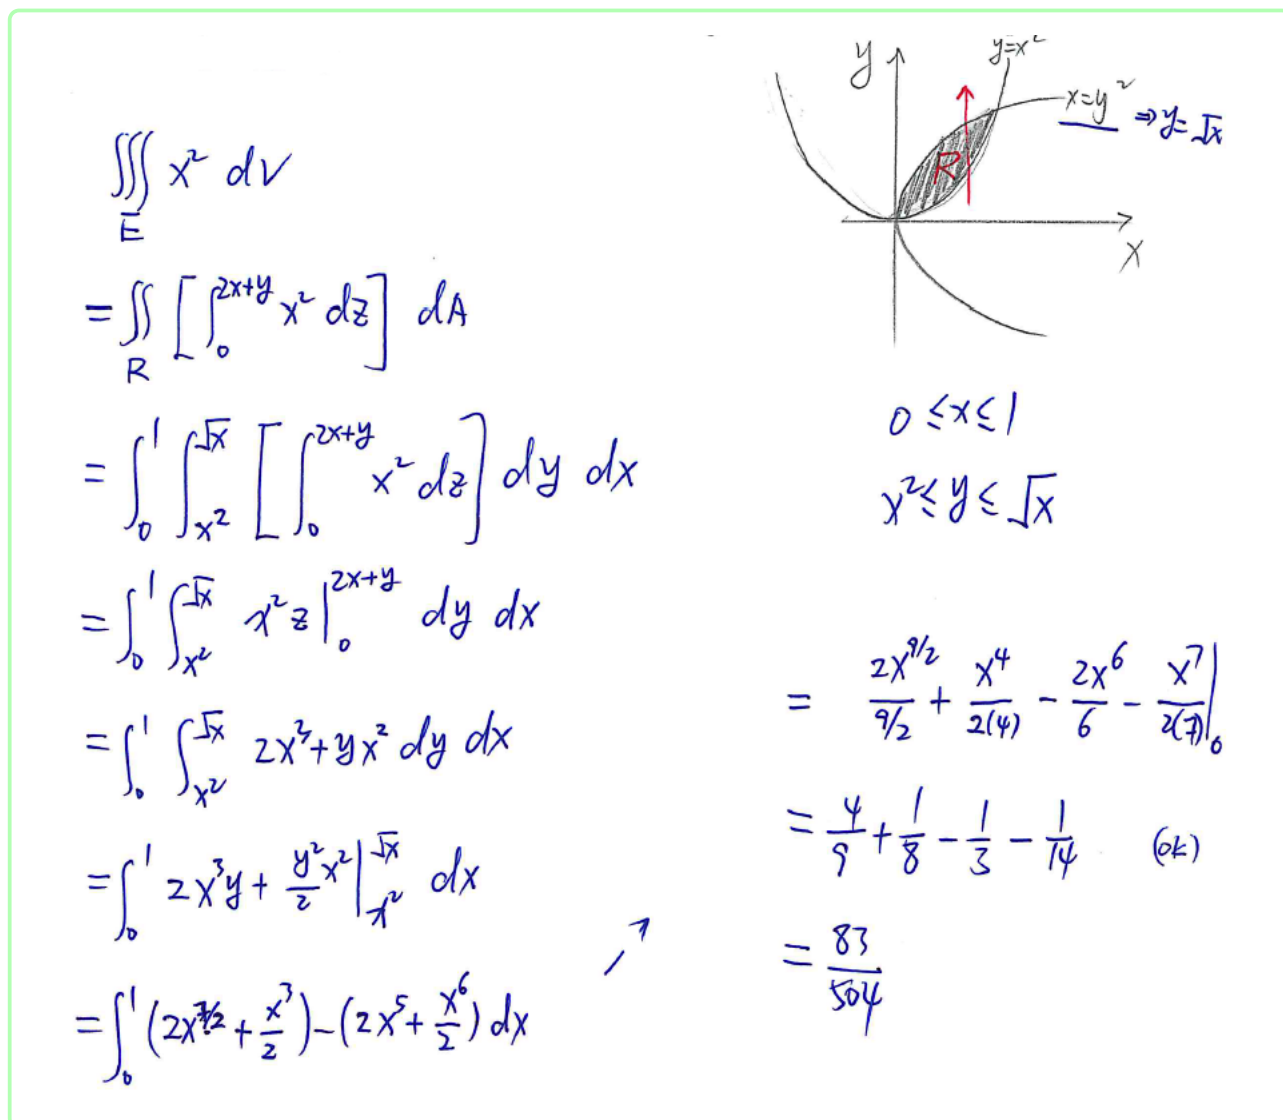 ∭_E x² dV
= ∬_R [∫_0^{2x+y} x² dz] dA
= ∫_0^1 ∫_{x²}^{√x} [∫_0^{2x+y} x² dz] dy dx
= ∫_0^1 ∫_{x²}^{√x} x²z |_0^{2x+y} dy dx
= ∫_0^1 ∫_{x²}^{√x} 2x³+yx² dy dx
= ∫_0^1 2x³y + y²/2 x² |_{x²}^{√x} dx
= ∫_0^1 (2x^{7/2} + x³/2) - (2x⁵ + x⁶/2) dx
y
y=x²
x=y² ⇒ y=√x
R
x
0 ≤ x ≤ 1
x² ≤ y ≤ √x
= 2x^{9/2}/(9/2) + x⁴/2(4) - 2x⁶/6 - x⁷/2(7) |_0
= 4/9 + 1/8 - 1/3 - 1/14 (ok)
= 83/504